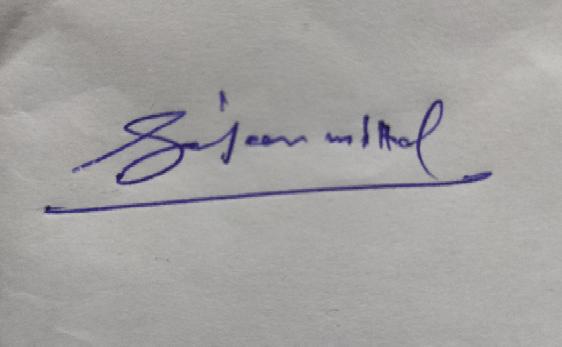 Sajean mittal